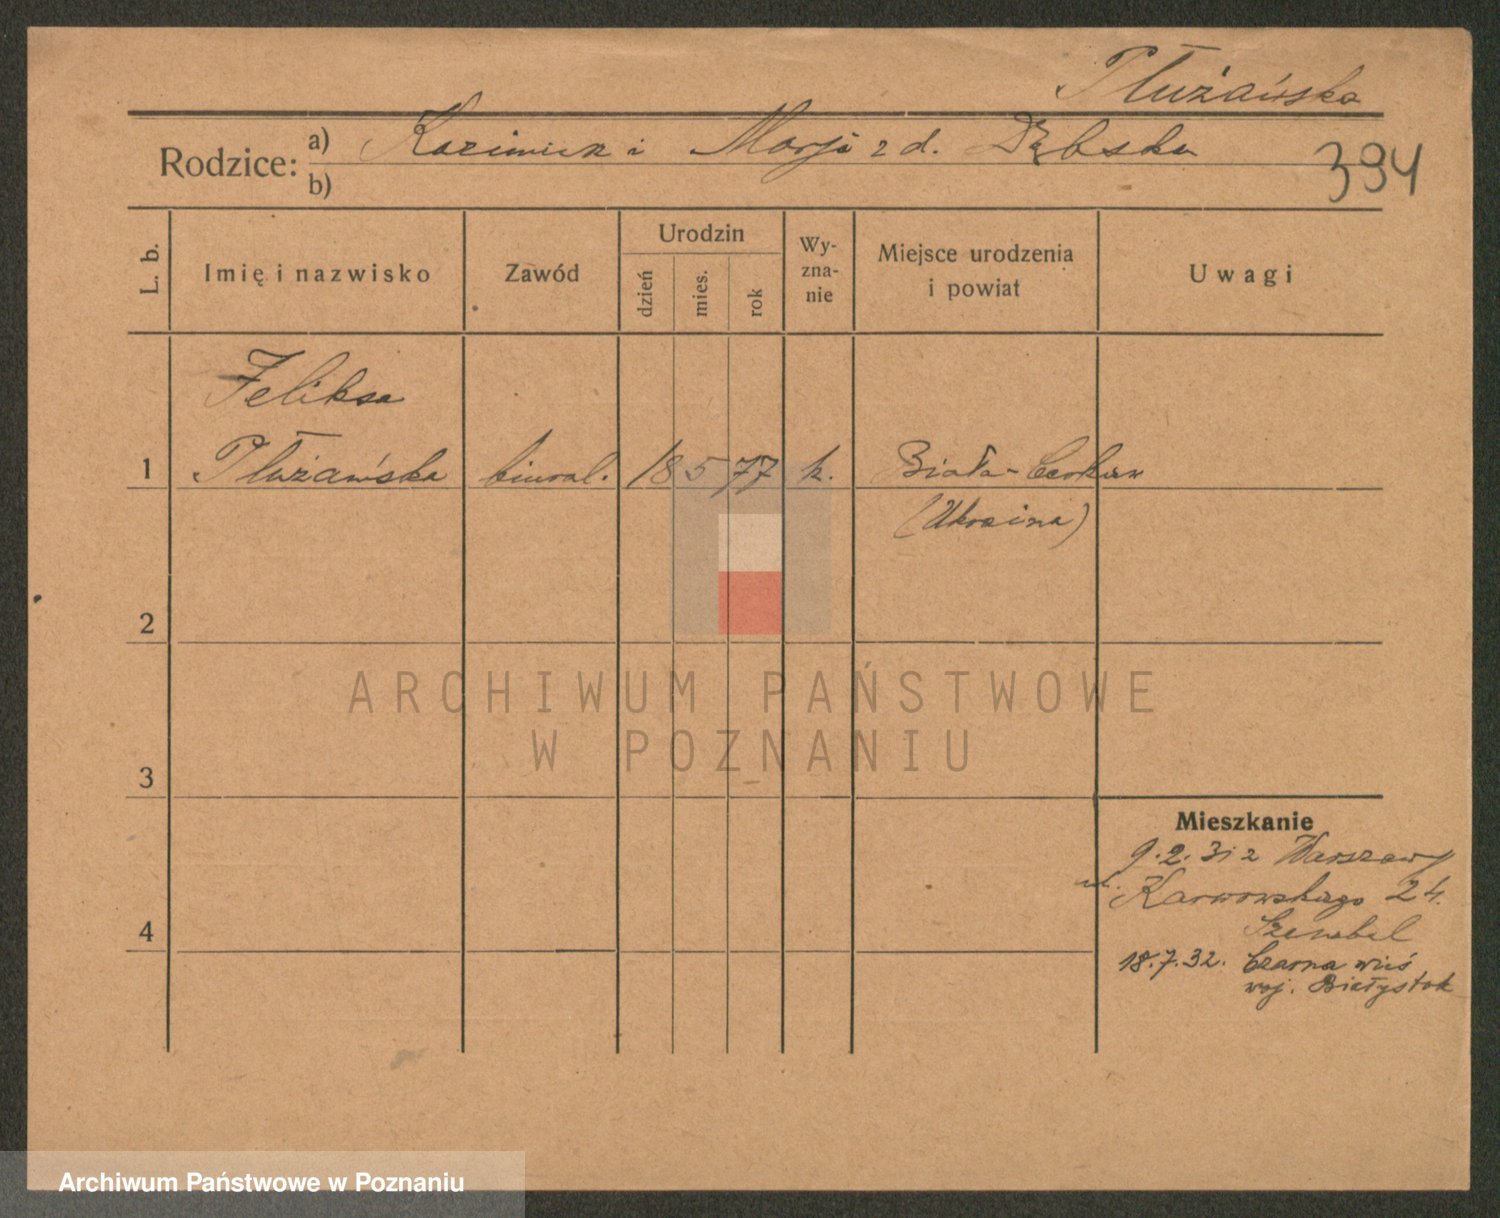 Płużańska
Rodzice: a) Kazimierz i Marja z d. Dębska
b)
394
L. b.
Imię i nazwisko
Zawód
Urodzin
dzień
mies.
rok
Wy-
zna-
nie
Miejsce urodzenia
i powiat
Uwagi
Feliksa
1 Płużańska biural. 18 5 77 k. Biała-Cerkiew
(Ukraina)
2
ARCHIWUM PAŃSTWOWE
W POZNANIU
3
Mieszkanie
9.2.31 z Warszawy
ul. Karwowskiego 24.
4
18.7.32. Czarna wieś
woj. Białystok
Archiwum Państwowe w Poznaniu